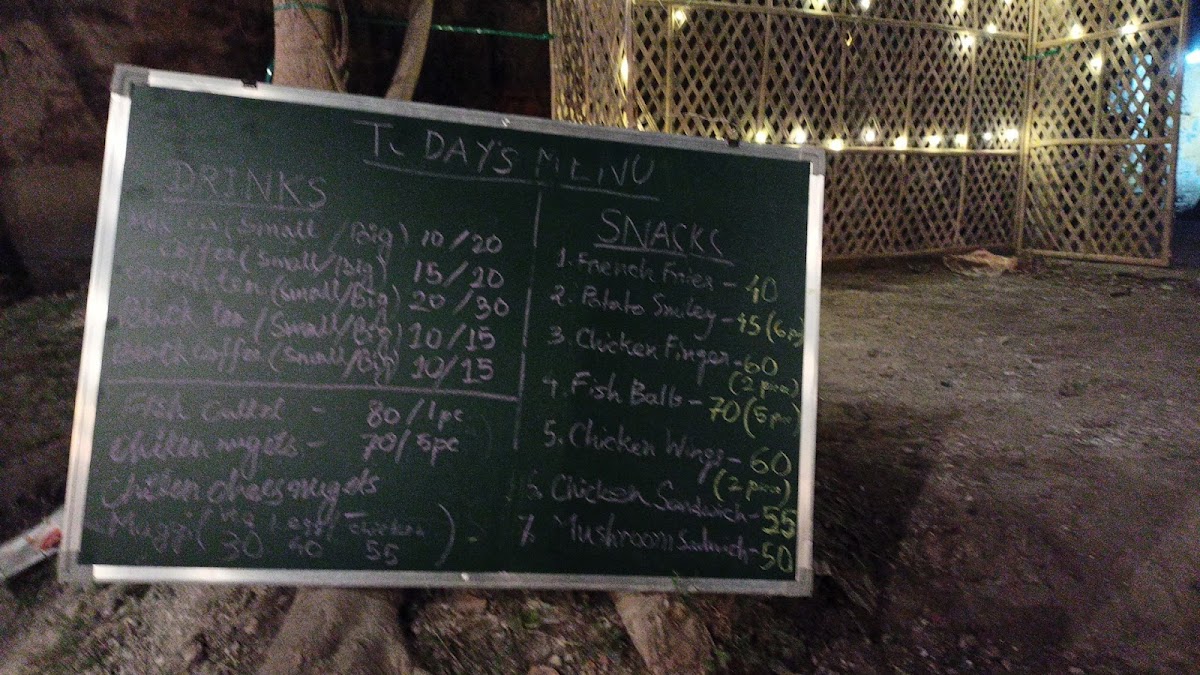 ToDAY'S MENU
DRINKS
(Small/Big) 10/20
Coffee (Small/Big) 15/20
(Small/Big) 20/30
Black tea (Small/Big) 10/15
Black Coffee (Small/Big) 10/15
Fish Cutlet - 80/1pc
Chicken nugets - 70/5pc
Chicken chees nugets -
Maggi (veg 30 egg 40 chicken 55) -
SNACKS
1. French Fries - 40
2. Potato Smiley - 45 (6
3. Chicken Finger - 60
(2
4. Fish Balls - 70 (5
5. Chicken Wings - 60
(2
6 Chicken Sandwich - 55
7. Mushroom Sadwich - 50